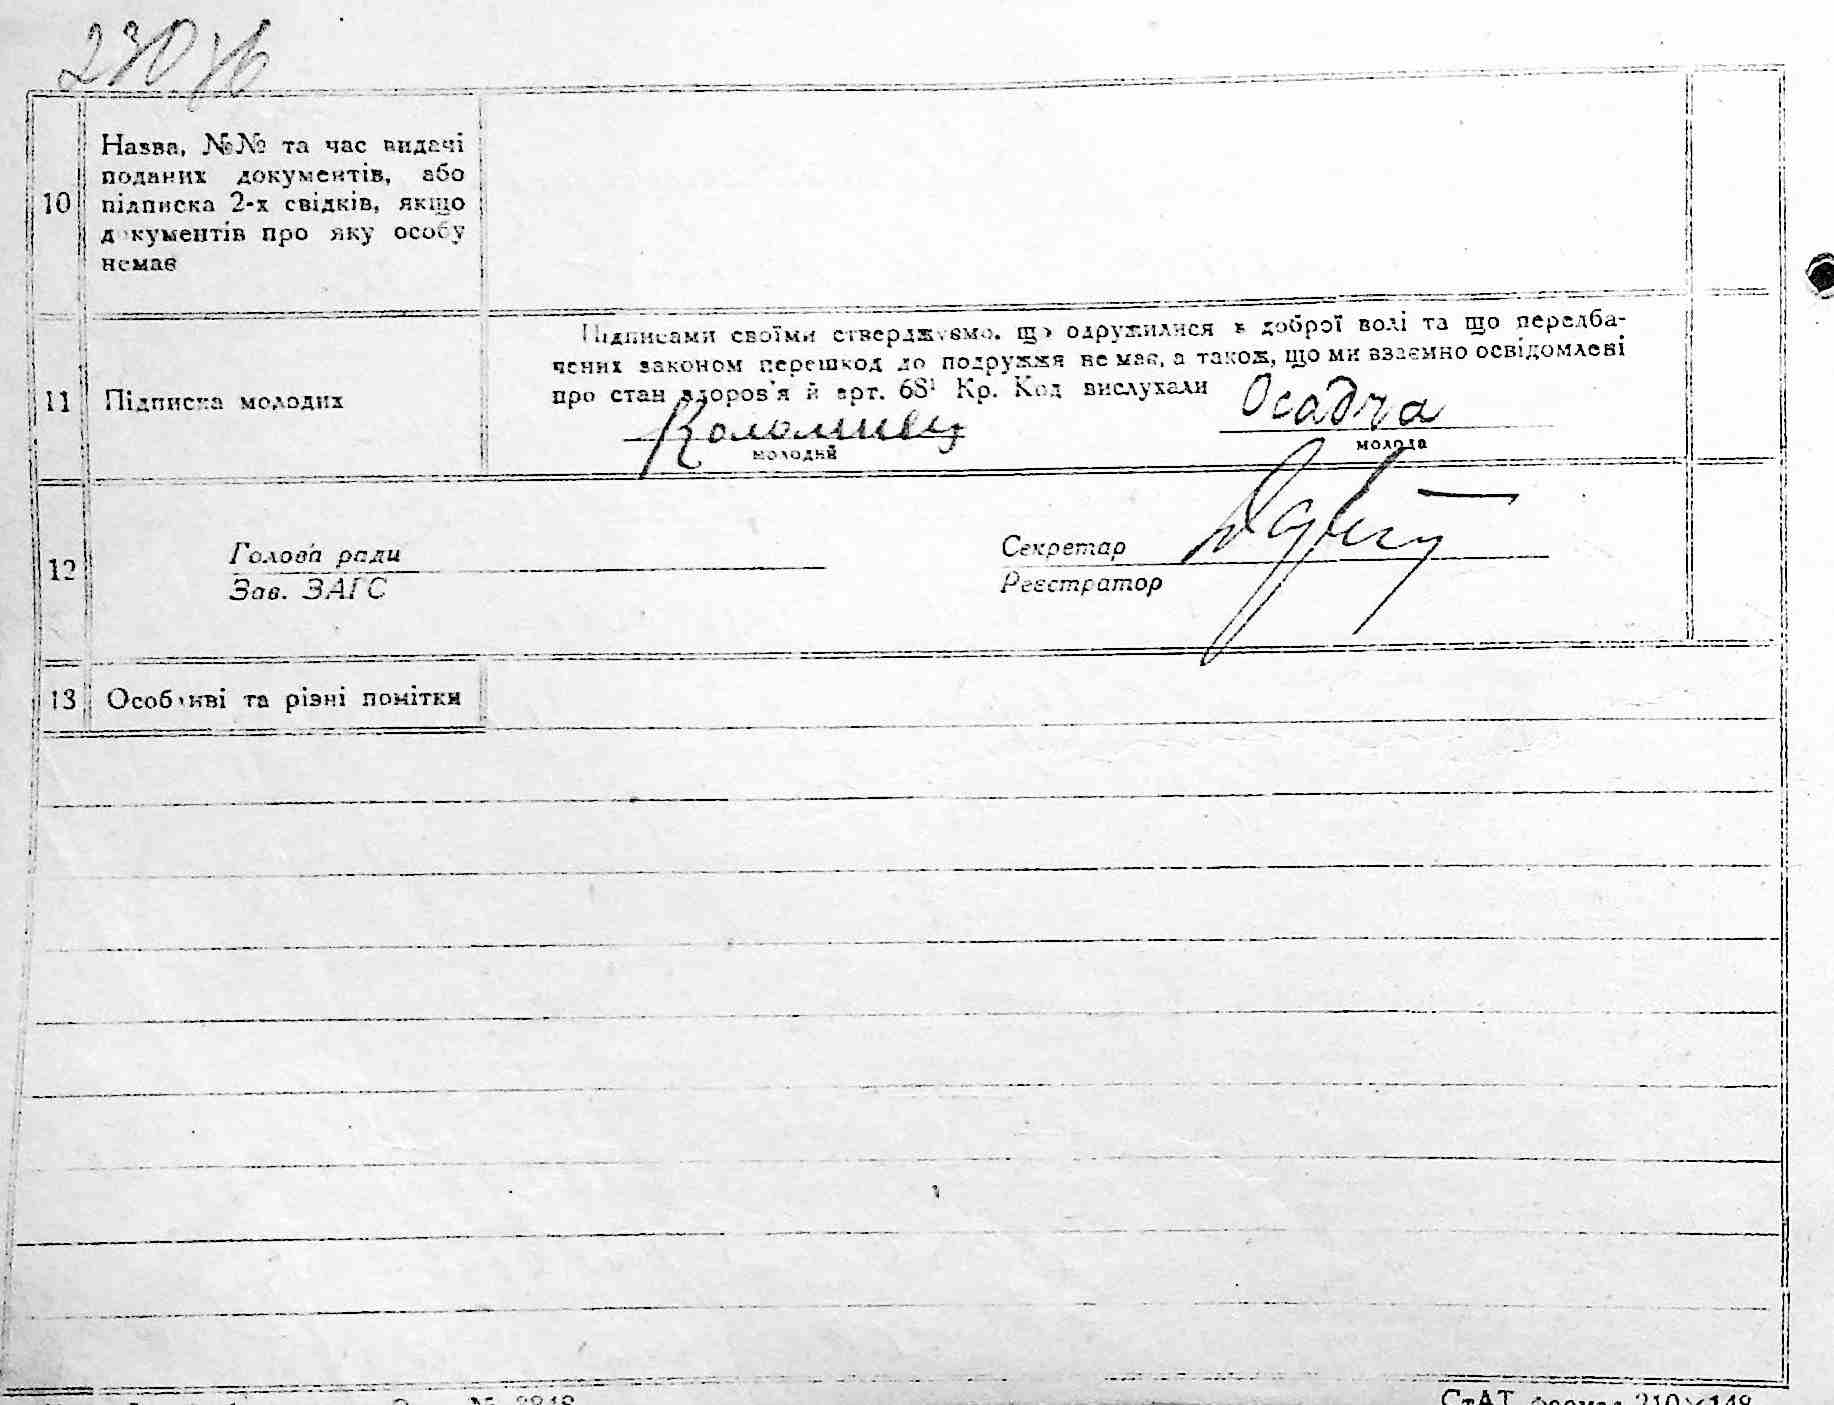 10
Назва, №№ та час видачі
поданих документів, або
підписка 2-х свідків, якщо
документів про яку особу
немає
11
Підписка молодих
Підписами своїми стверджуємо, що одружилися з доброї волі та що передба-
чених законом перешкод до подружжя не має, а також, що ми взаємно освідомлені
про стан здоров'я й арт. 68¹ Кр. Код вислухали
Коломиец
Осадча
молодий
молода
12
Голова ради
Зав. ЗАГС
Секретар
Реєстратор
13
Особливі та різні помітки
СтАТ формат 210×148